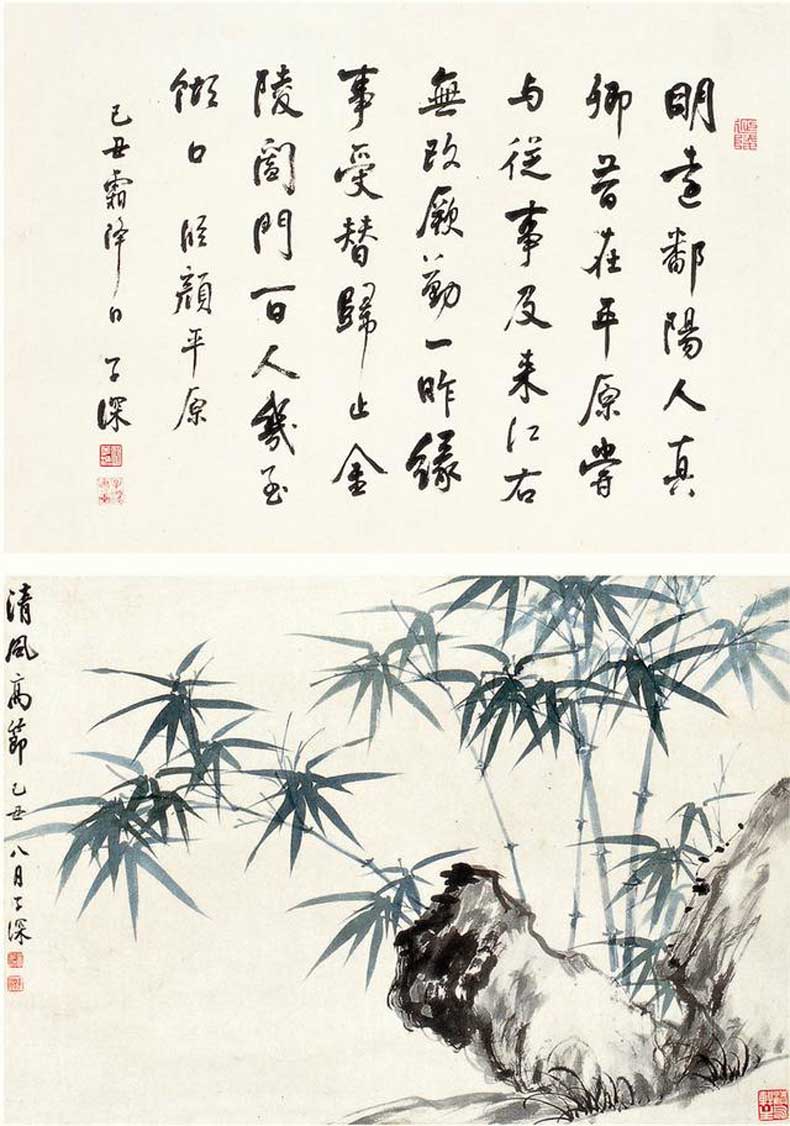 明遠鄱陽人真
卿昔在平原嘗
与從事及來江右
無改厥勤一昨緣
事受替歸止金
陵闔門百人幾至
餬口 臨顏平原
己丑霜降日 子深
清風高節 己丑八月子深